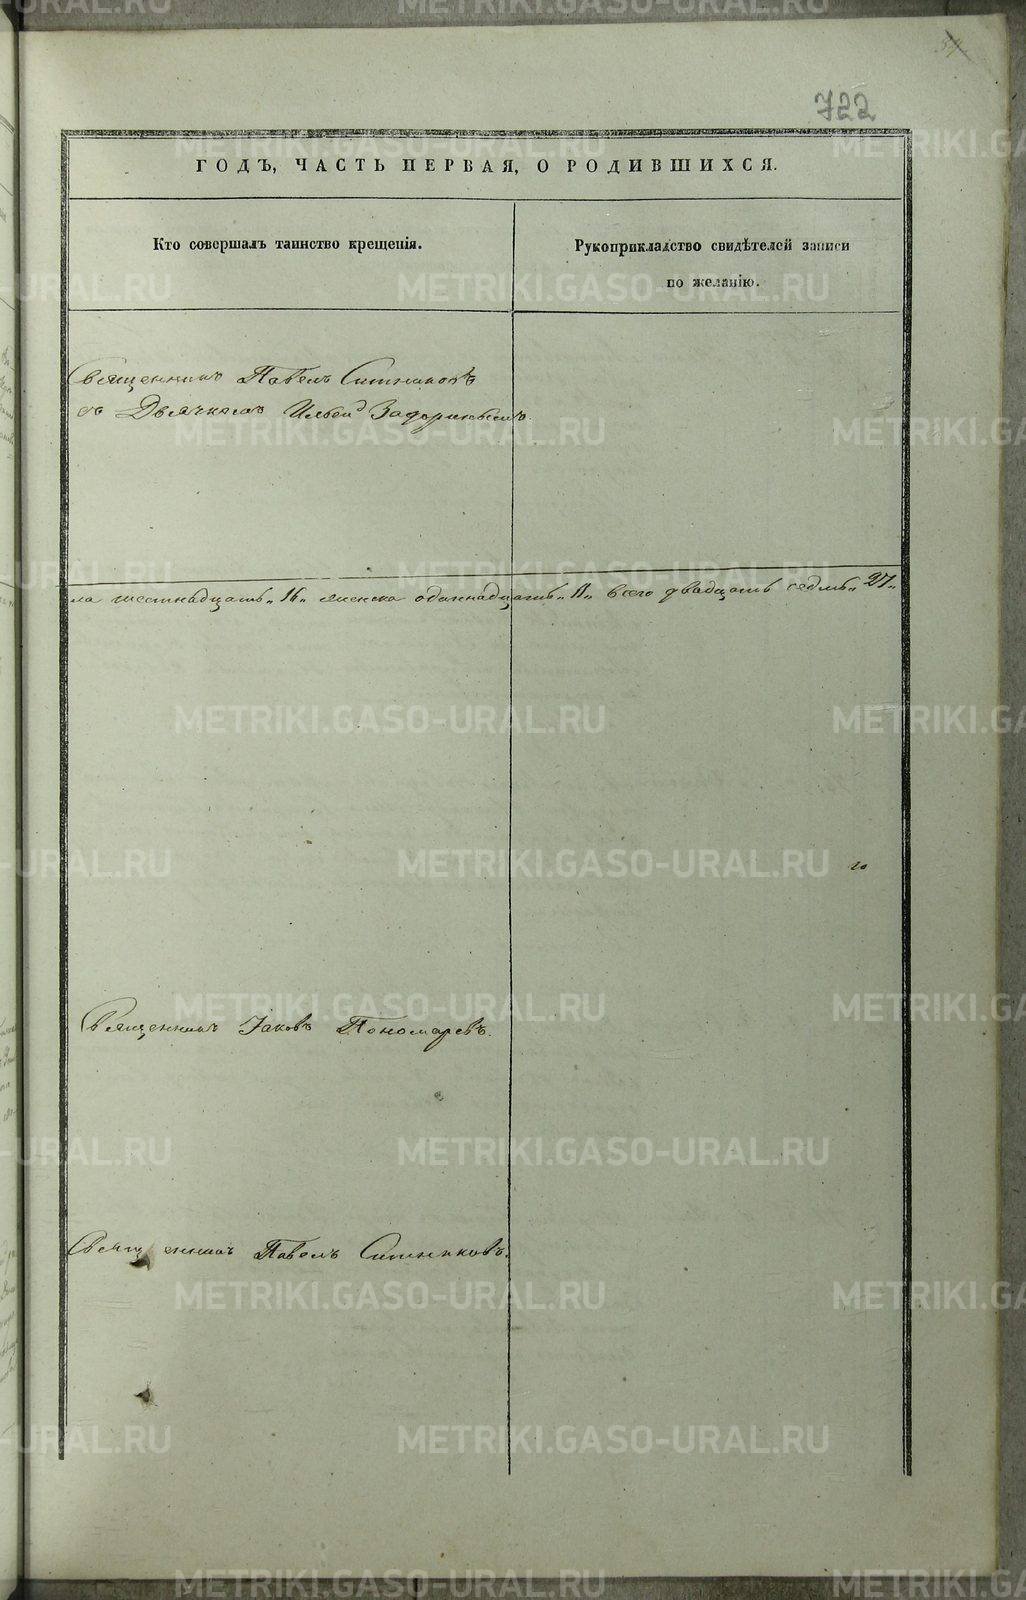 722
ГОДЪ, ЧАСТЬ ПЕРВАЯ, О РОДИВШИХСЯ.
Кто совершалъ таинство крещенія.
Рукоприкладство свидѣтелей записи
по желанію.
Священникъ Павелъ Ситниковъ
съ Дьячкомъ Ильей Задоринымъ.
ла шестнадцать „16„ женска одиннадцать „11„ всего двадцать седмь „27„
го
Священникъ Іаковъ Пономаревъ.
Священникъ Павелъ Ситниковъ.
METRIKI.GASO-URAL.RU